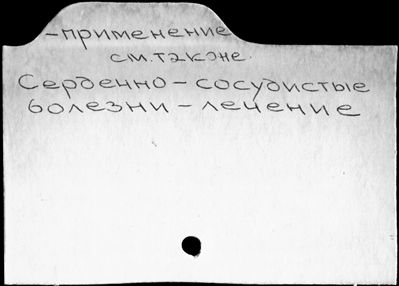 -применение
см.тэкэне.
Сердечно-сосудистые
болезни-лечение